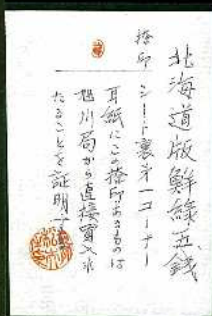 北海道版鮮緑五銭
捺印 シート裏オ一コーナー
耳紙にこの捺印あるものは
旭川局から直接買入れ
たることを証明す